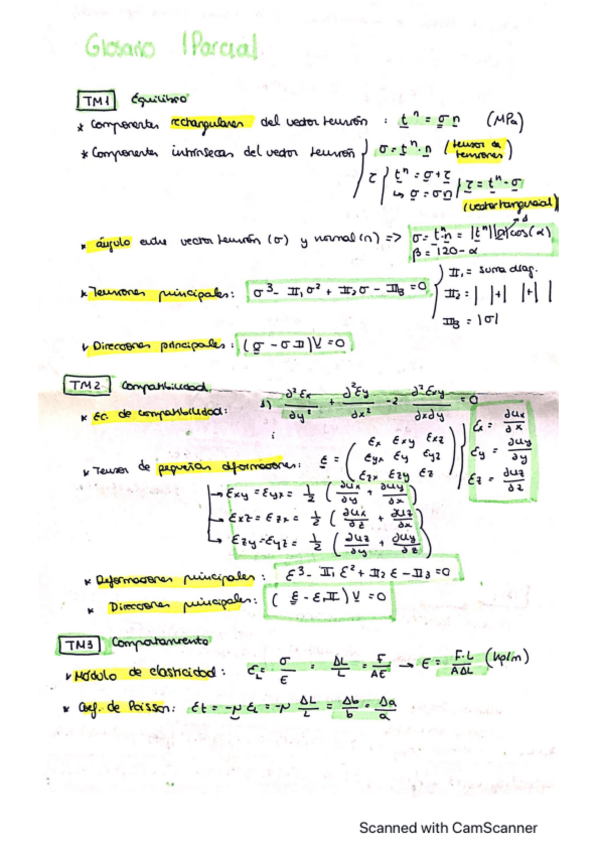 Glosario 1Parcial.
TM1 Equilibrio
* Componentes rectangulares del vector tensión : t^n = σ n (MPa)
* Componentes intrínsecas del vector tensión { σ = t^n · n (tensor de tensiones)
τ { t^n = σ + τ
↳ σ = σn } τ = t^n - σ
(vector tangencial)
* ángulo entre vector tensión (σ) y normal (n) => σ = t^n · n = |t^n||n| cos(α)
β = 120 - α
* Tensiones principales: σ³ - II₁σ² + II₂σ - II₃ = 0 { II₁ = suma diag.
II₂ = | |+| |+| |
II₃ = |σ|
* Direcciones principales: (σ - σ II) V = 0
TM2 Compatibilidad
* Ec. de compatibilidad: 1) ∂²εx/∂y² + ∂²εy/∂x² - 2 ∂²εxy/∂x∂y = 0
⋮
εx = ∂ux/∂x
εy = ∂uy/∂y
εz = ∂uz/∂z
* Tensor de pequeñas deformaciones: ε = ( εx εxy εxz
εyx εy εyz
εzx εzy εz )
→ εxy = εyx = 1/2 (∂ux/∂y + ∂uy/∂x)
→ εxz = εzx = 1/2 (∂ux/∂z + ∂uz/∂x)
→ εzy = εyz = 1/2 (∂uz/∂y + ∂uy/∂z)
* Deformaciones principales: ε³ - II₁ε² + II₂ε - II₃ = 0
* Direcciones principales: (ε - ε II) V = 0
TM3 Comportamiento
* Módulo de elasticidad: εL = σ/E = ΔL/L = F/AE → E = F·L/AΔL (kp/m)
* Coef. de Poisson: εt = -μ εL = -μ ΔL/L = Δb/b = Δa/a
Scanned with CamScanner